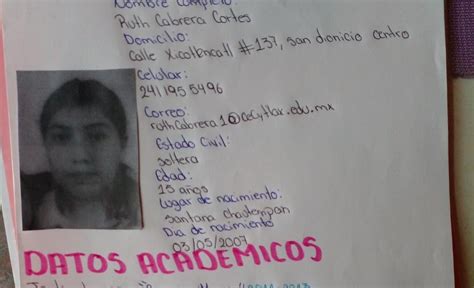 Nombre Completo:
Ruth Cabrera Cortes
Domicilio:
Calle Xicotencatl #137, san dionicio centro
Celular:
241 195 5496
Correo:
ruthcabrera10@cecytlax.edu.mx
Estado Civil:
soltera
Edad:
15 años
Lugar de nacimiento:
santana chiautempan
Dia de nacimiento
03/05/2007
DATOS ACADEMICOS